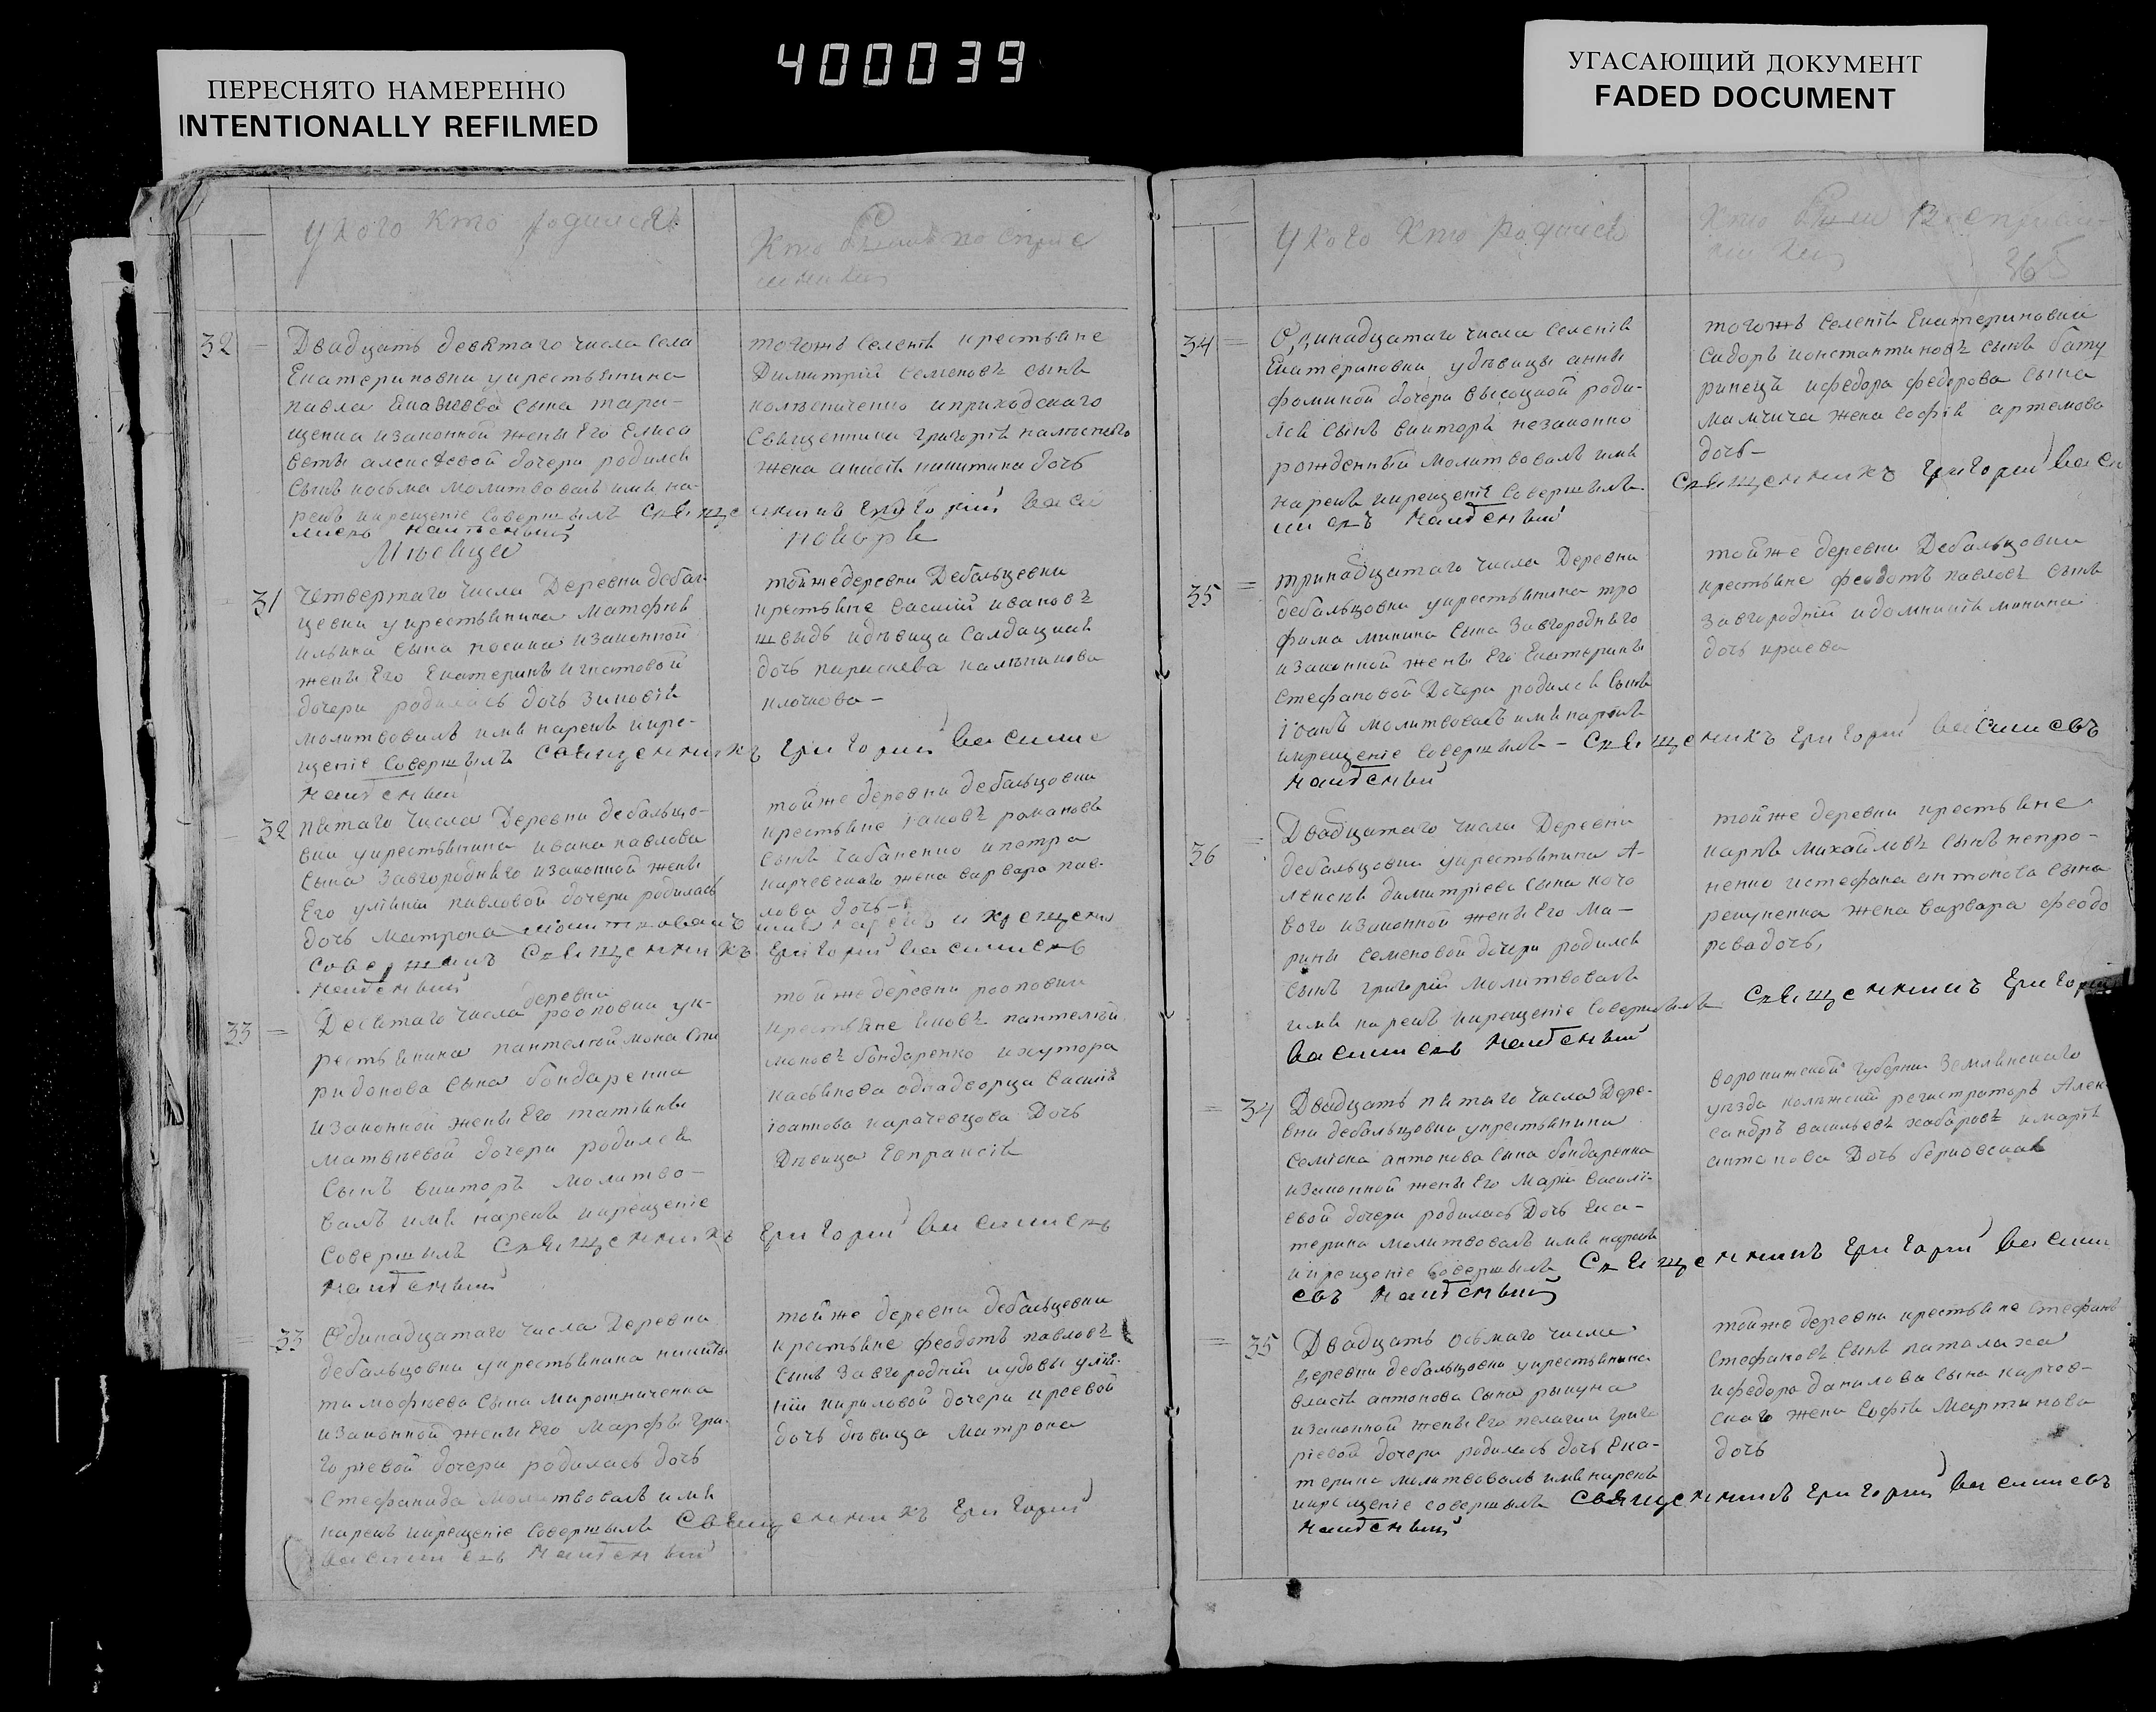 400039
ПЕРЕСНЯТО НАМЕРЕННО
INTENTIONALLY REFILMED
УГАСАЮЩИЙ ДОКУМЕНТ
FADED DOCUMENT
У кого кто родился
Кто были воспрiе
мники
32
Двадцать девятаго числа села
Екатериновки у крестьянина
павла сына тара-
щенка и законной жены Его Елиса
веты алексѣевой дочери родился
сынъ косьма молитвовалъ имя на-
рекъ и крещенiе совершилъ Священникъ Григорiй Васи
лiевъ
тогожъ селенiя крестьяне
Димитрiй семеновъ сынъ
колѣсниченко и приходскаго
Священника григорiя
жена анисiя никитина дочь
Мѣсяца ноября
31
Четвертаго числа Деревни дебал
цевки у крестьянина Матофiя
ильина сына носика и законной
жены Его Екатерины Игнатовой
дочери родилась дочь Зиновiя
молитвовалъ имя нарекъ и кре-
щенiе совершилъ Священникъ Григорiй Василiе
тойже деревни Дебальцевки
крестьяне василiй ивановъ
швыдь и дѣвица Салдацкая
дочь
клочкова -
32
пятаго числа Деревни дебальцо-
вки у крестьянина ивана павлова
сына Завгородняго и законной жены
Его улiянiи павловой дочери родилась
дочь Матрона молитвовалъ имя нарекъ и крещенiе
совершилъ Священникъ Григорiй Василiевъ
тойже деревни дебальцовки
крестьяне iаковъ романовъ
сынъ чабаненко и петра
карчевскаго жена варвара пав-
лова дочь -
33
Девятаго числа деревни рооповки у к-
рестьянина пантелеймона спи
ридонова сына бондаренка
и законной жены Его татiяны
матвѣевой дочери родился
сынъ викторъ молитво-
валъ имя нарекъ и крещенiе
совершилъ Священникъ Григорiй Василiевъ
тойже деревни рооповки
крестьяне Iаковъ пантелей
моновъ бондаренко и хутора
касьянова однодворца василiя
iоаннова карачевцова Дочь
Дѣвица Евпраксiя
33
Одинадцатаго числа Деревни
дебальцовки у крестьянина никиты
тимофѣева сына мирошниченка
и законной жены Его Марфы гри
горiевой дочери родилась дочь
Стефанида молитвовалъ имя
нарекъ и крещенiе совершилъ Священникъ Григорiй
Василiевъ
тойже деревни дебальцевки
крестьяне феодотъ павловъ
сынъ Завгороднiй и удовы улiя-
нiи кириловой дочери краевой
дочь дѣвица матрона
У кого кто родился
Кто были воспрiем-
ники
34
Одинадцатаго числа селенiя
Екатериновки удовицы анны
фоминой дочери высоцкой роди-
лся сынъ викторъ незаконно
рожденный молитвовалъ имя
нарекъ и крещенiе совершилъ Священникъ Григорiй Васи
лiевъ
тогожъ селенiя Екатериновки
Сидоръ константиновъ сынъ бату
ринецъ и федора федорова сына
мамчича жена софiя артемова
дочь -
35
тринадцатаго числа Деревни
дебальцовки у крестьянина тро
фима минина сына Завгородняго
и законной жены Его Екатерины
Стефановой Дочери родился сынъ
Iоанъ молитвовалъ имя нарекъ
и крещенiе совершилъ - Священникъ Григорiй Василiевъ
тойже деревни Дебальцовки
крестьяне феодотъ павловъ сынъ
завгороднiй и домникiя минина
дочь краева
36
Двадцатаго числа Деревни
дебальцовки у крестьянина А-
лексѣя димитрiева сына кочо
вого и законной жены Его Ма-
рины семеновой дочери родился
сынъ григорiй молитвовалъ
имя нарекъ и крещенiе совершилъ Священникъ Григорiй
Василiевъ
тойже деревни крестьяне
карпъ михайловъ сынъ непро-
ненко и стефана антонова сына
жена варвара феодо
рова дочь,
34
Двадцать пятаго числа Дере-
вни дебальцовки у крестьянина
семiона антонова сына бондаренка
и законной жены Его Марiи василi-
евой дочери родилась Дочь Ека-
терина молитвовалъ имя нарекъ
и крещенiе совершилъ Священникъ Григорiй Василi
евъ
воронижской губернiи Землянскаго
уѣзда колѣжскiй регистраторъ Алек
сандръ васильевъ хабаровъ и марiя
антонова Дочь
35
Двадцать осьмаго числа
деревни дебальцовки у крестьянина
власiя антонова сына рыкуна
и законной жены Его пелагiи григо
рiевой дочери родилась дочь Ека-
терина молитвовалъ имя нарекъ
и крещенiе совершилъ Священникъ Григорiй Василiевъ
тойже деревни крестьяне стефанъ
стефановъ сынъ паталаха
и федора данилова сына карчев-
скаго жена софiя Мартинова
дочь